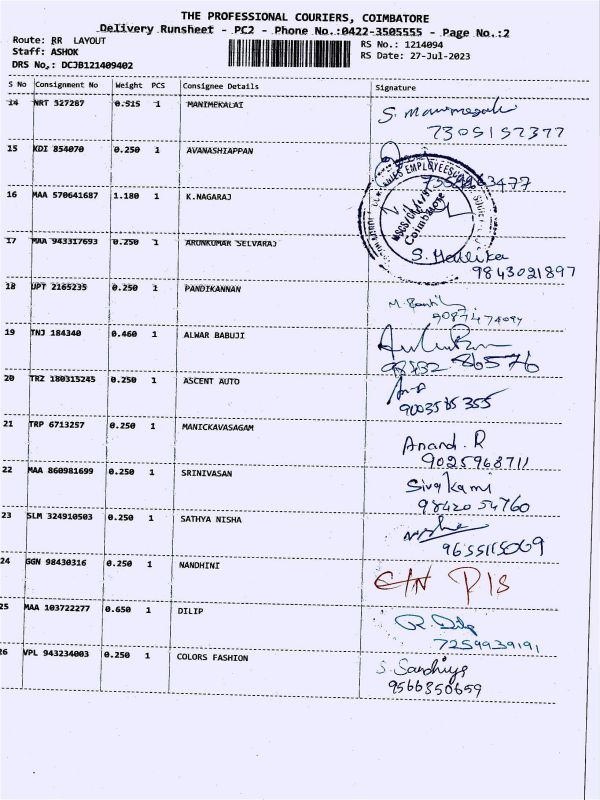 THE PROFESSIONAL COURIERS, COIMBATORE
Delivery Runsheet - PC2 - Phone No.:0422-3505555 - Page No.:2
Route: RR LAYOUT
RS No.: 1214094
Staff: ASHOK
RS Date: 27-Jul-2023
DRS No,: DCJB121409402
S No Consignment No Weight PCS Consignee Details Signature
14 NRT 327287 0.515 1 MANIMEKALAI S. Manimegalai
7305157377
15 KDI 854070 0.250 1 AVANASHIAPPAN
16 MAA 570641687 1.180 1 K.NAGARAJ
EMPLOYEES
Coimbatore
17 MAA 943317693 0.250 1 ARUNKUMAR SELVARAJ S. Mallika
9843021897
18 UPT 2165235 0.250 1 PANDIKANNAN
19 TNJ 184340 0.460 1 ALWAR BABUJI
86576
20 TRZ 180315245 0.250 1 ASCENT AUTO
9003585355
21 TRP 6713257 0.250 1 MANICKAVASAGAM Anand. R
9025968711
22 MAA 860981699 0.250 1 SRINIVASAN Sivakami
9842054760
23 SLM 324910503 0.250 1 SATHYA NISHA Nisha
9655115069
24 GGN 98430316 0.250 1 NANDHINI
25 MAA 103722277 0.650 1 DILIP R. Dilip
7259939191
26 VPL 943234003 0.250 1 COLORS FASHION S. Sandhiya
9566350659